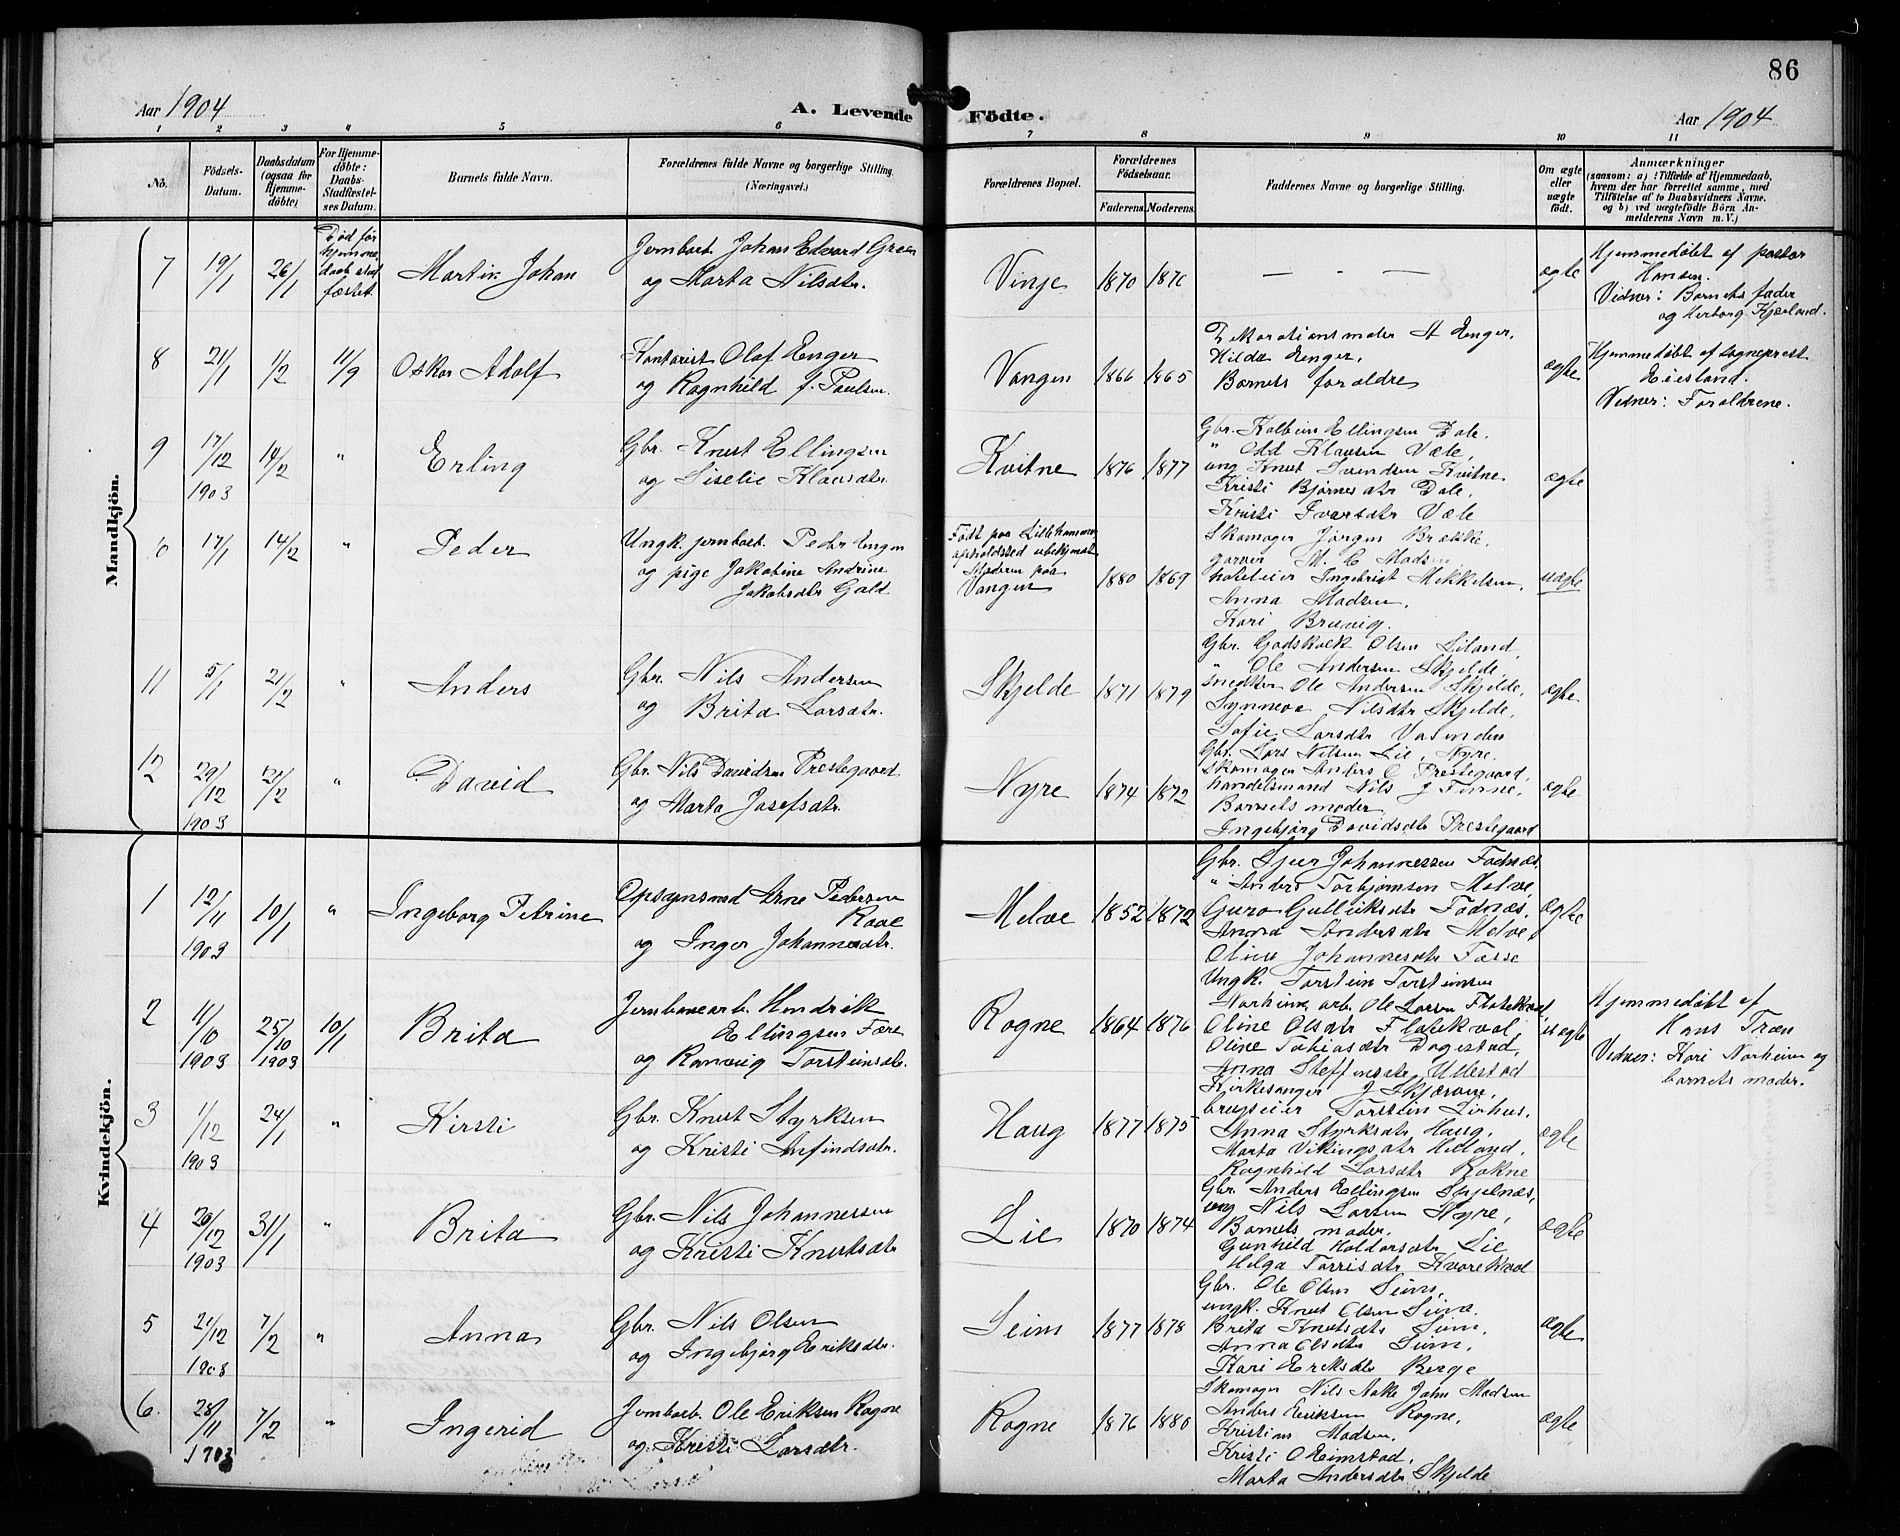 86
Aar 1904
A. Levende Födte.
Aar 1904
1 2 3 4 5 6 7 8 9 10 11
No.
Födsels-Datum.
Daabsdatum (ogsaa for Hjemmedöbte)
For Hjemmedöbte: Daabs-Stadfæstelses Datum.
Barnets fulde Navn.
Forældrenes fulde Navne og borgerlige Stilling. (Næringsvei.)
Forældrenes Bopæl.
Forældrenes Födselsaar.
Faderens Moderens
Faddernes Navne og borgerlige Stilling.
Om ægte eller uægte födt.
Anmærkninger
(saasom: a) i Tilfælde af Hjemmedaab, hvem der har forrettet samme, med Tilföielse af to Daabsvidners Navne, og b) ved uægtefödte Börn Anmelderens Navn m. V.)
Mandkjön.
7 19/1 26/1 Död før hjemmedaab stadfæstet Martin Johan
Jernbarb. Johan Edvard Green
og Marta Nilsdtr.
Vinje 1870 1870 — - — ægte
Hjemmedøbt af pastor
Hansen.
Vidner: Barnets fader
og Herborg Kjørland.
8 21/1 1/2 11/9 Oskar Adolf
Kontorist Olaf Enger
og Ragnhild f. Paulsen.
Vangen 1866 1865
Dekorationsmaler A Enger,
Hilda Enger,
Barnets forældre
ægte
Hjemmedøbt af sogneprest
Eiesland.
Vidner: Forældrene.
9 17/12 1903 14/2 " Erling
Gbr. Knut Ellingsen
og Siselie Klausdtr.
Kvitne 1876 1877
Gbr. Kolbein Ellingsen Dale,
" Odd Klausen Væle,
ung Knut Svendsen Kvitne
Kristi Bjørnesdtr Dale,
Kristi Ivarsdtr Væle
ægte
10 17/1 14/2 " Peder
Ungk. jernbarb. Peder Engen
og pige Jakobine Andrine
Jakobsdtr Gald
Født paa Lillehammer,
opholdssted ubekjendt
Moderen paa
Vangen 1880 1869
Skomager Jørgen Brække,
garver M. C Madsen
hoteleier Ingebrigt Mikkelsen,
Anna Madsen,
Kari Bruvig.
uægte
11 5/1 21/2 " Anders
Gbr. Nils Andersen
og Brita Larsdtr.
Skjelde 1871 1879
Gbr. Godskalk Olsen Liland,
" Ole Andersen Skjelde,
snedker Ole Andersen Skjelde,
Synneva Nilsdtr Skjelde,
Sofie Larsdtr Vasenden
ægte
12 29/12 1903 21/2 " David
Gbr. Nils Davidsen Prestegaard
og Marta Josefsdtr.
Nyre 1874 1872
Gbr. Lars Nilsen Lie, Nyre,
Skomager Anders Prestegaard,
handelsmand Nils J Finne,
Barnets moder
Ingebjørg Davidsdtr Prestegaard
ægte
Kvindekjön.
1 12/11 1903 10/1 " Ingeborg Petrine
Opsynsmd Arne Pedersen
Raae
og Inger Johannesdtr.
Melve 1852 1872
Gbr. Sjur Johannessen Fadnæs,
" Anders Torbjørnsen Melve,
Guro Gulleiksdtr Fadnæs,
Anna Andersdtr Melve
Oline Johannesdtr Fæsse
ægte
2 11/10 1903 25/10 1903 10/1 Brita
Jernbanearb. Hendrik
Ellingsen Fære
og Ranveig Torsteinsdtr.
Rogne 1864 1876
Ungk. Torstein Torsteinsen
Norheim, arb. Ole Larsen Flatekval
Oline Olsdtr Flatekval,
Oline Tobiasdtr Dagestad,
Anna Steffensdtr Ullestad
uægte
Hjemmedøbt af
Hans Træn
Vidner: Kari Norheim og
barnets moder.
3 1/12 1903 24/1 " Kirsti
Gbr. Knut Styrksen
og Kristi Anfindsdtr.
Haug 1877 1875
Kirkesanger J Skjerve,
brugseier Torstein Lirhus,
Anna Styrksdtr Haug,
Marta Vikingsdtr Helland,
Ragnhild Larsdtr Rokne
ægte
4 20/12 1903 31/1 " Brita
Gbr. Nils Johannessen
og Kristi Knutsdtr
Lie 1870 1874
Gbr. Anders Ellingsen Skjelnæs,
ung Nils Larsen Nyre,
Barnets moder,
Gunhild Haldorsdtr Lie
Helga Torrisdtr Kvarekval
ægte
5 21/12 1903 7/2 " Anna
Gbr. Nils Olsen
og Ingebjørg Eriksdtr.
Seim 1877 1878
Gbr. Ole Olsen Seim,
ungk. Knut Olsen Seim,
Brita Knutsdtr Seim,
Anna Olsdtr Seim,
Kari Eriksdtr Berge
ægte
6. 28/11 1903 7/2 " Ingerid
Jernbarb. Ole Eriksen Rogne
og Kristi Larsdtr.
Rogne 1876 1880
Skomager Nils Aake John Madsen
Anders Eriksen Rogne,
Kristine Madsen,
Kristi O Heimstad,
Marta Andersdtr Skjelde
ægte